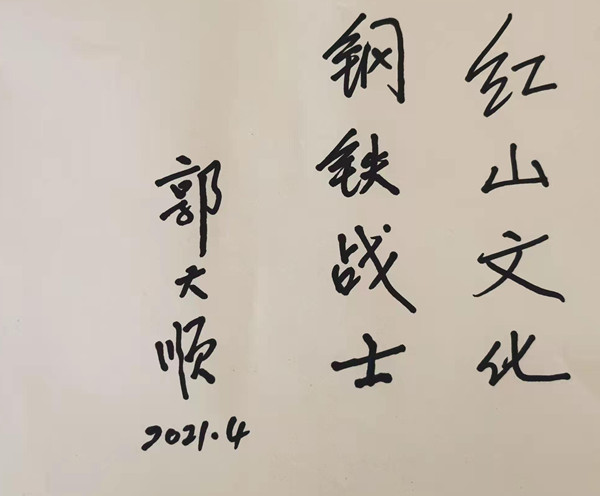 红山文化
钢铁战士
郭大顺
2021.4